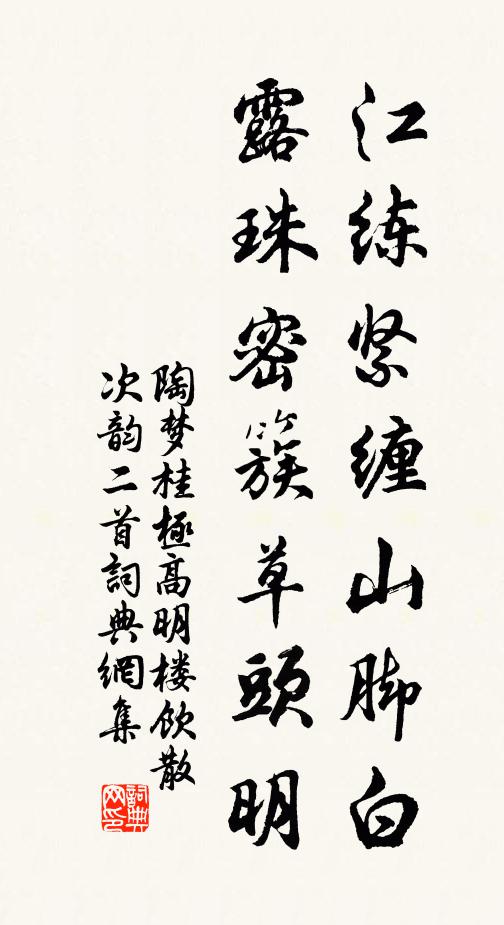 江练紧缠山脚白
露珠密簇草頭明
陶梦桂極高明楼饮散
次韵二首詞典網集
詞典网印